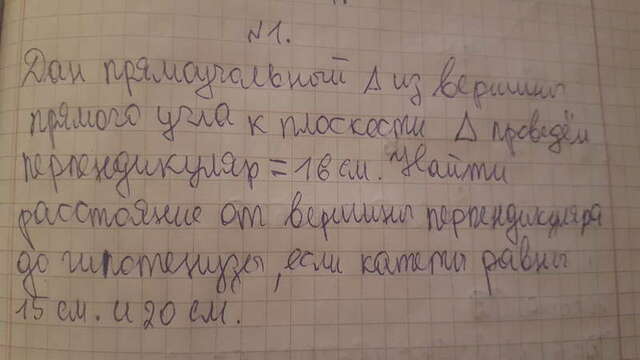 №1.
Дан прямоугольный Δ из вершины
прямого угла к плоскости Δ проведём
перпендикуляр = 16 см. Найти
расстояние от вершины перпендикуляра
до гипотенузы, если катеты равны
15 см. и 20 см.